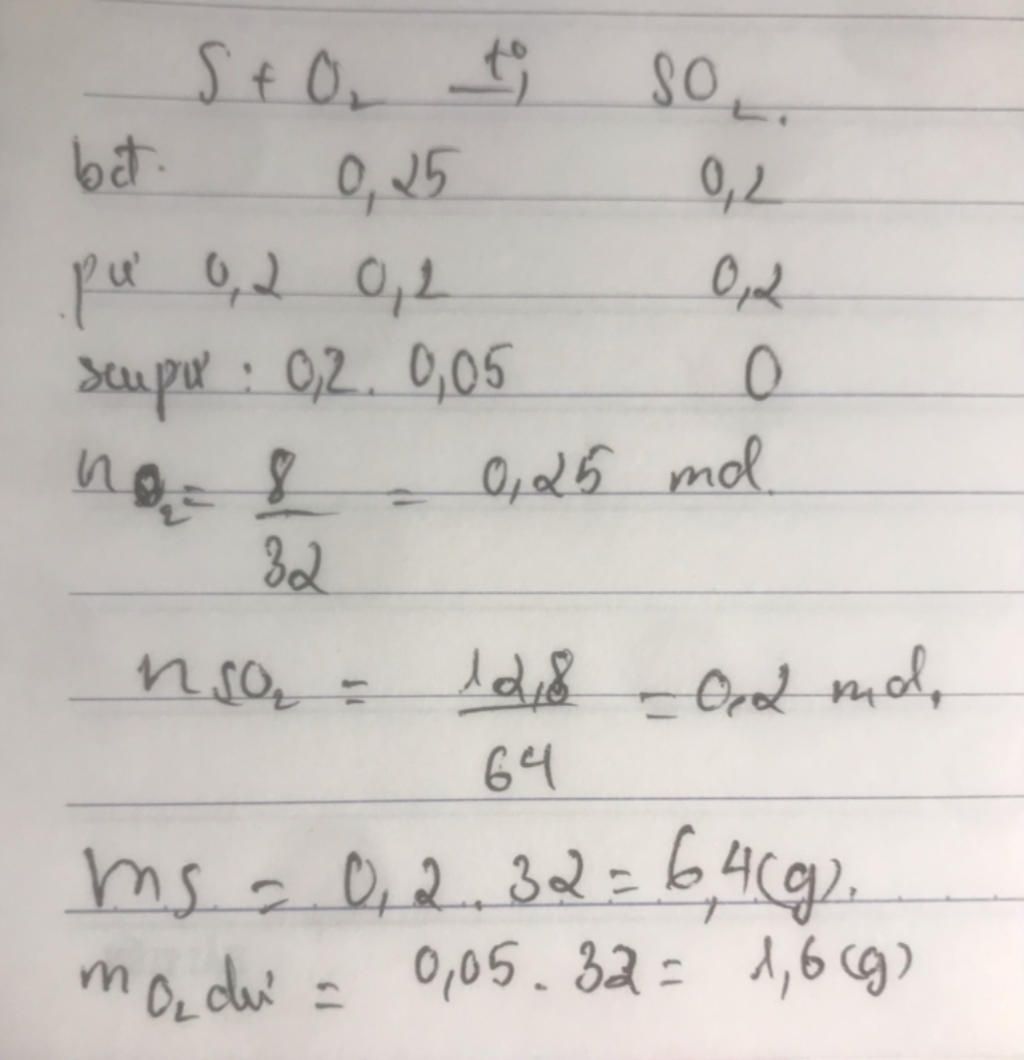 S + O₂ —t°→ SO₂.
bđ. 0,25 0,2
pư 0,2 0,2 0,2
saupư : 0,2. 0,05 0
nO₂ = 8/32 = 0,25 mol.
nSO₂ = 12,8/64 = 0,2 mol.
mS = 0,2 . 32 = 6,4(g).
mO₂ dư = 0,05 . 32 = 1,6(g)